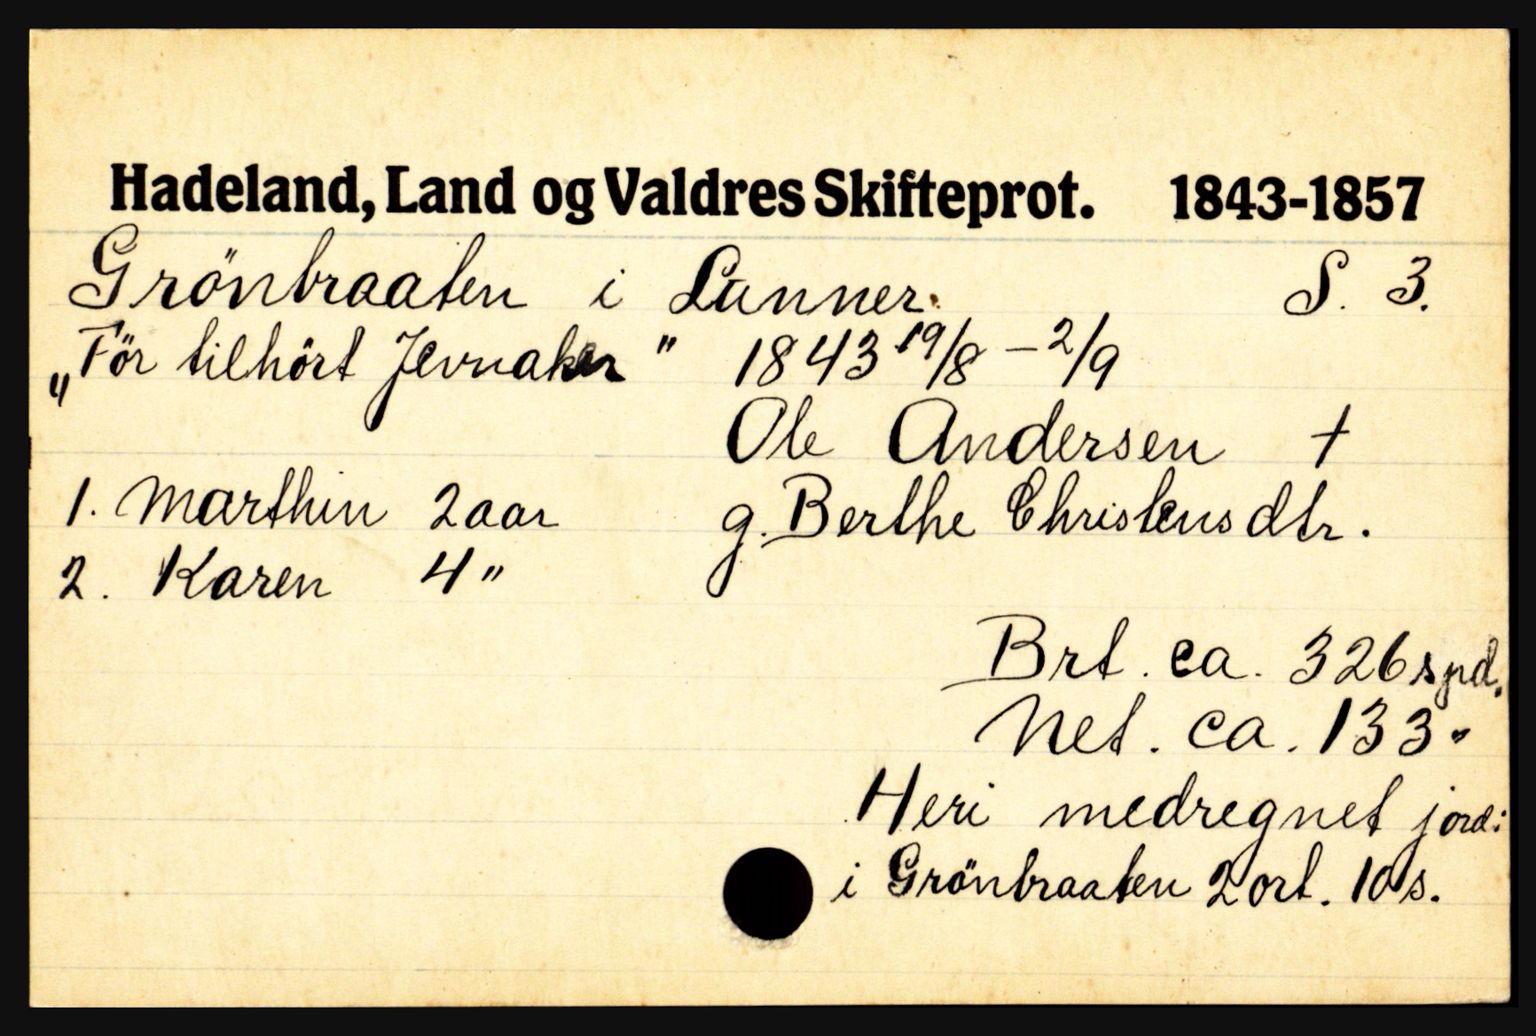 Hadeland, Land og Valdres Skifteprot. 1843-1857
Grönbraaten i Lunner. S. 3.
„För tilhört Jevnaker" 1843 19/8 – 2/9
Ole Andersen †
1. Marthin 2 aar g. Berthe Christensdtr.
2. Karen 4 "
Brt. ca. 326 spd.
Net. ca. 133 "
Heri medregnet jord:
i Grönbraaten 2 ort. 10 s.